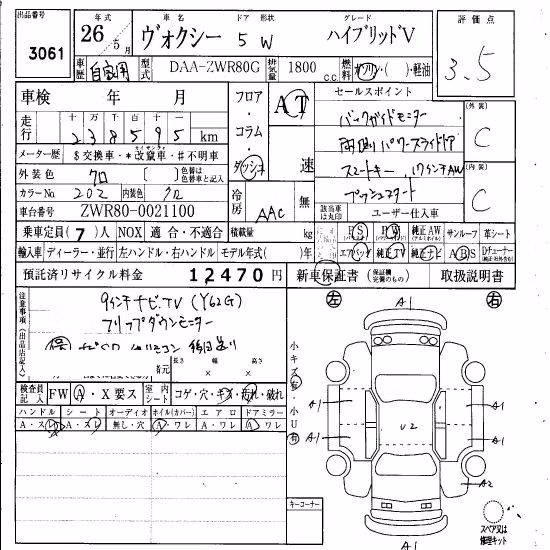 出品番号 年式 車名 ドア 形状 グレード 評価点
3061 26年 5月 ヴォクシー 5 W ハイブリッドV 3.5
車歴 自家用 型式 DAA-ZWR80G 排気量 1800 c.c. 燃料 ガソリン・( )・軽油
車検 年 月 フロア・コラム・ダッシュ AT 速 セールスポイント
走行 十 万 千 百 十 一
238595 km
バックガイドモニター
両側パワースライドドア
スマートキー, 17インチAW
プッシュスタート
外装 C
内装 C
メーター歴 $交換車・*改竄車・#不明車
外装色 クロ [ ] 色替車は元色と色替車と記入
カラーNo. 202 内装色 クロ
冷房 AAC 無
車台番号 ZWR80-0021100
ユーザー仕入車
乗車定員(7)人 NOX 適合・不適合 積載量 kg
該当車は丸印 PS PW 純正AW サンルーフ 革シート
輸入車 ディーラー・並行 左ハンドル・右ハンドル モデル年式( )年
エアバッグ 純正TV 純正ナビ ABS
預託済リサイクル料金 12470円 新車保証書 取扱説明書
注意事項 (出品店記入)
9インチナビ.TV (Y62G)
フリップダウンモニター
左 右
長さ 幅 高さ
検査員記入 FW A・X要ス 室内 シート コゲ・穴・キズ・汚れ・破れ
ハンドル シート オーディオ ホイル(カバー) エアロ ドアミラー
A・スレ A・スレ 無し・穴 A・ワレ A・ワレ A・ワレ
小キズ有・小U有
A1
A1 A1
U2
A1 A1
A2
A1
キーコーナー
スペア又は修理キット